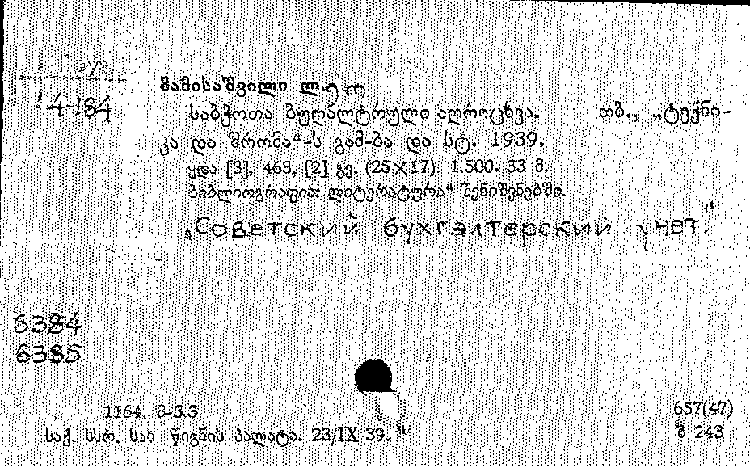 14184
მამისაშვილი
საბჭოთა ბუღალტრული აღრიცხვა. თბ., „ტექნი-
კა და შრომა“-ს გამ-ბა და სტ. 1939.
ყდა [3], 463, [2] გვ. (25×17). 1.500. 33 მ.
ბიბლიოგრაფია: ლიტერატურა" შენიშვნებში.
„Советский бухгалтерский
6384
6385
1164.
657(47)
საქ. სსრ. სახ. წიგნის პალატა. 23/IX 39.
მ 243